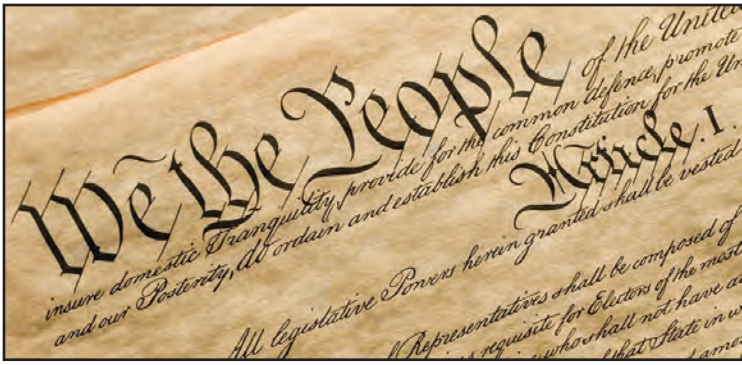 We the People of the United
insure domestic Tranquility, provide for the common defence, promote
and our Posterity, do ordain and establish this Constitution for the Un
Article. I.
All legislative Powers herein granted shall be vested
Representatives shall be composed of
requisite for Electors of the most
who shall not have a
that State in w